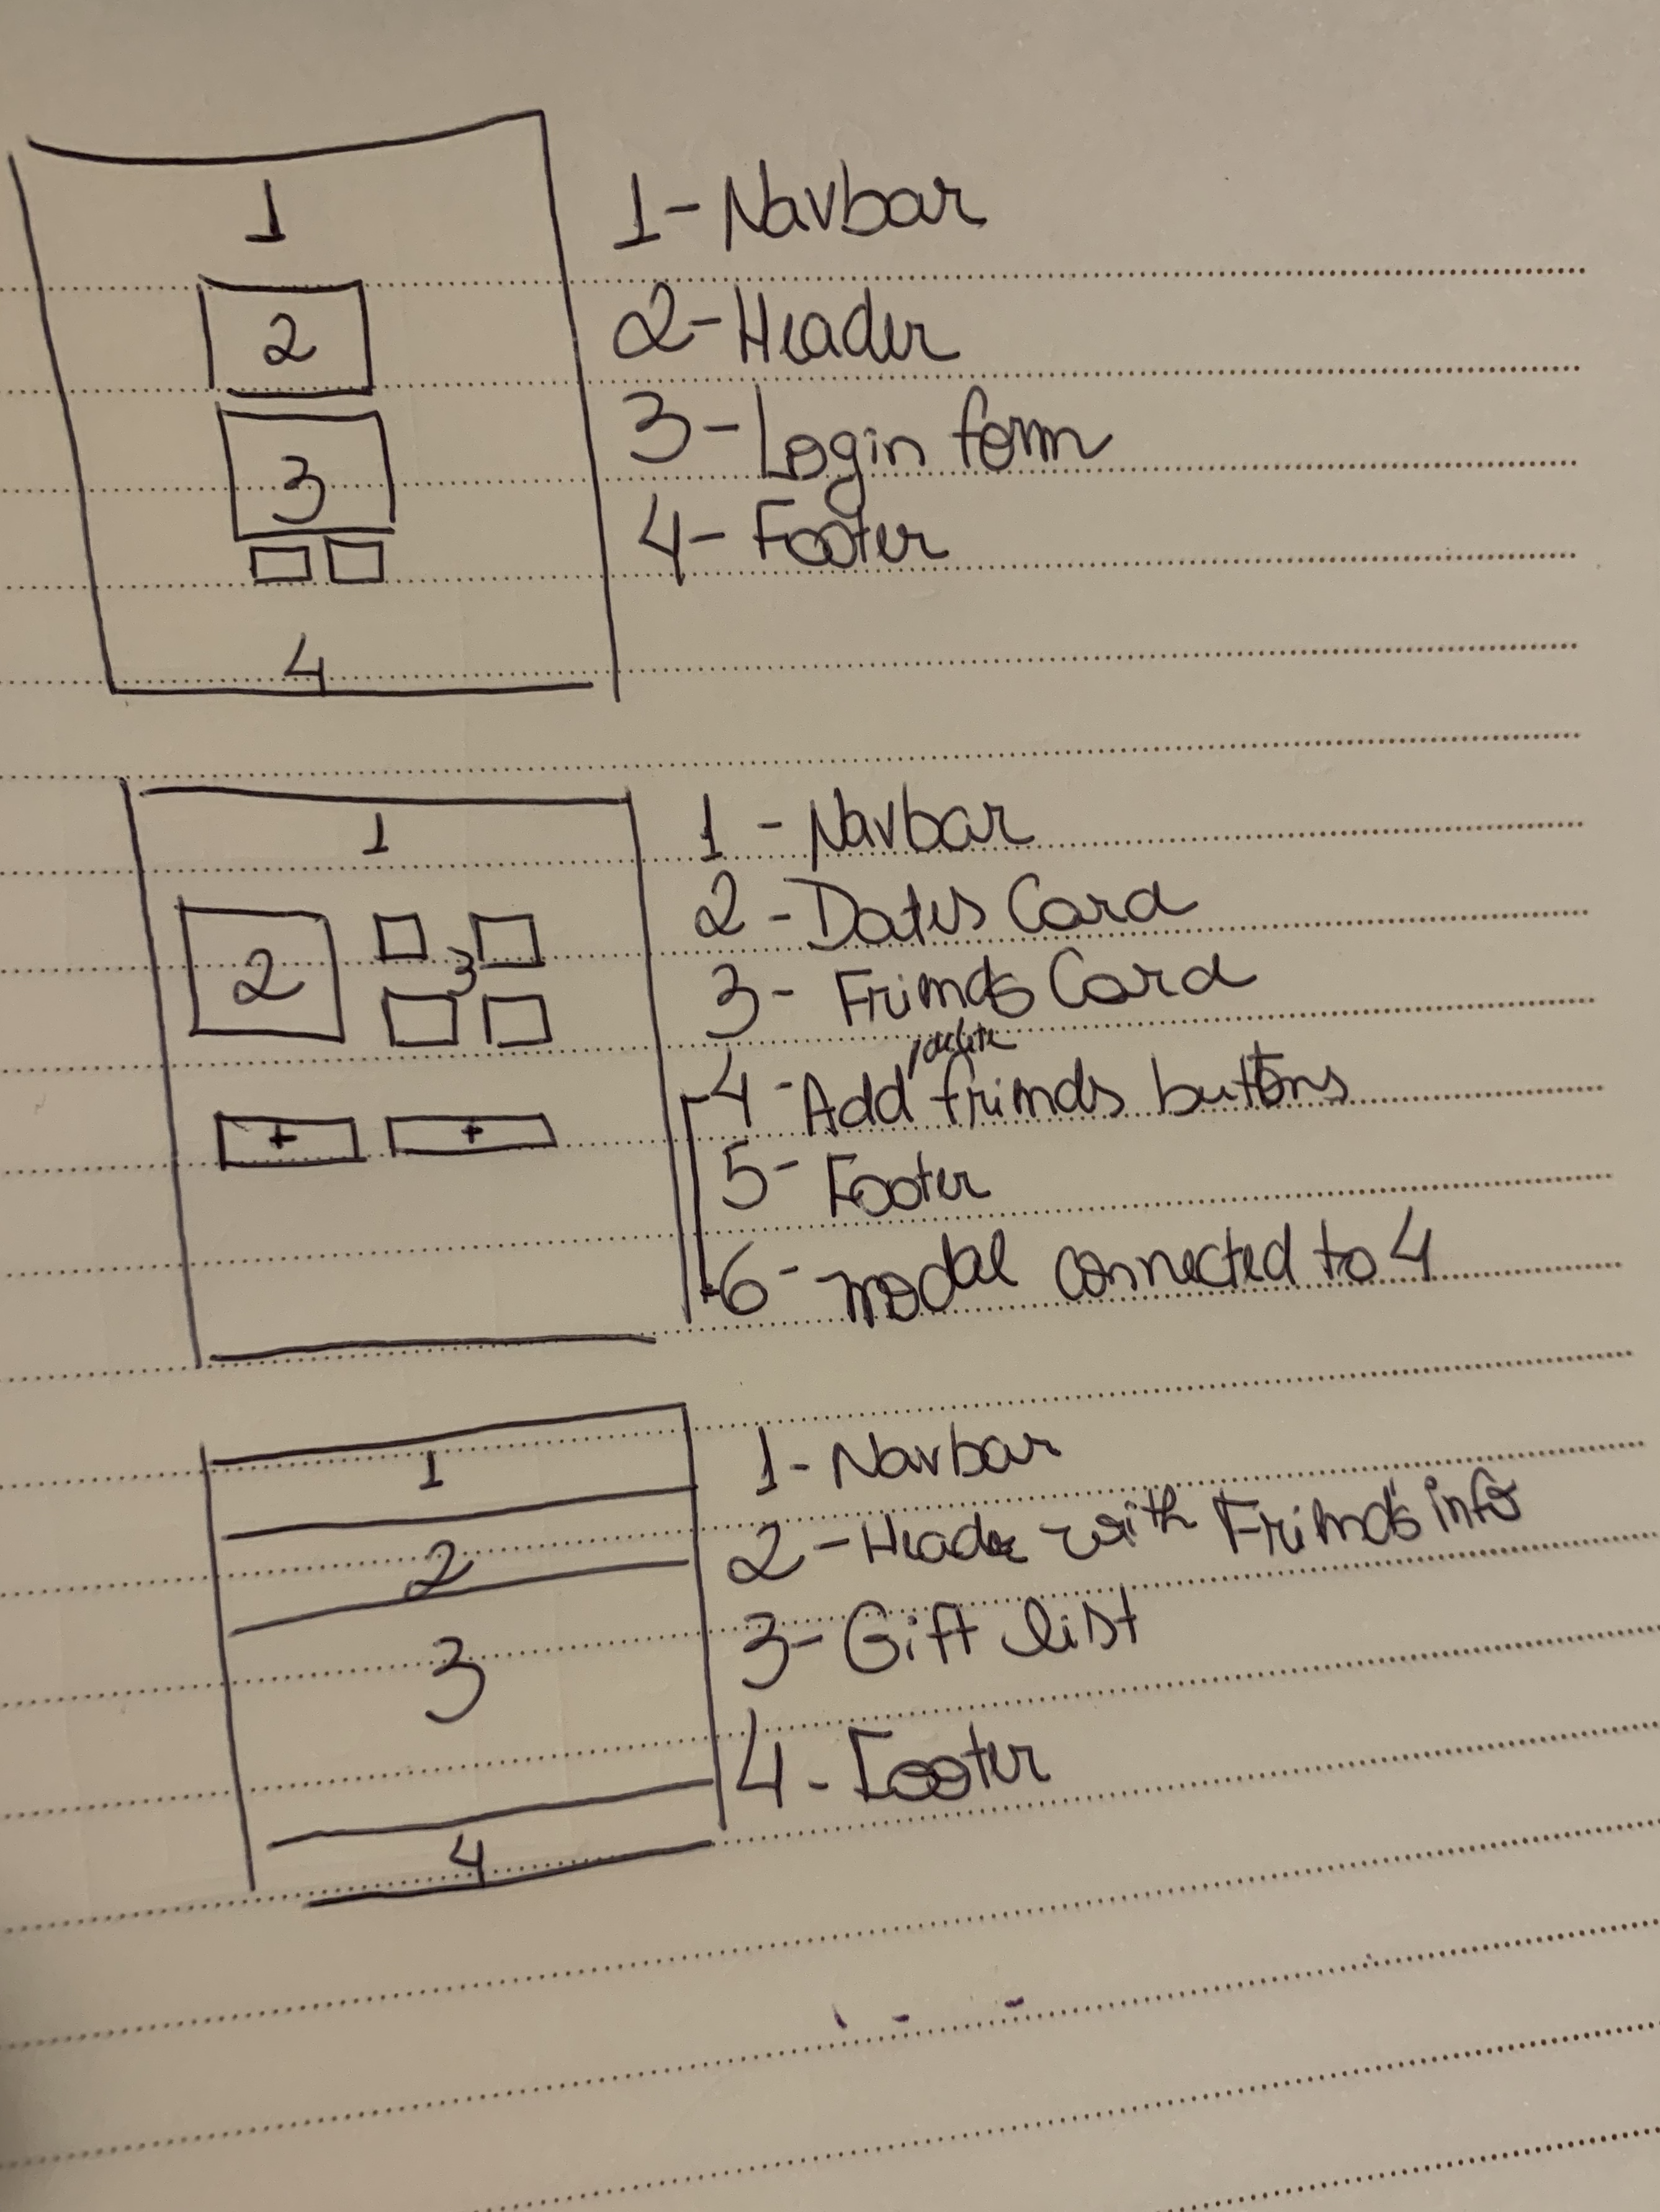 1
2
3
4
1 - Navbar
2 - Header
3 - Login form
4 - Footer
1
2
3
+ +
1 - Navbar
2 - Dates Card
3 - Friends Card
/delete
4 - Add friends buttons
5 - Footer
6 - modal connected to 4
1
2
3
4
1 - Navbar
2 - Header with Friend's info
3 - Gift list
4 - Footer